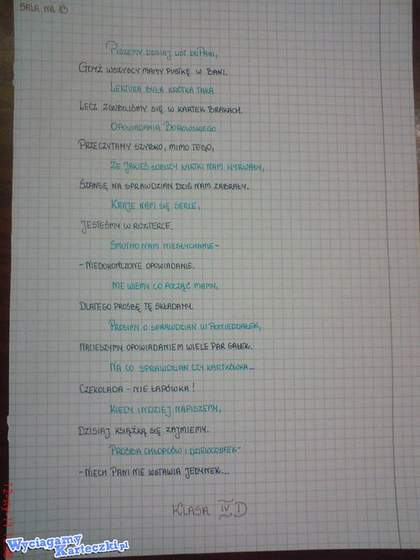 SALA NR 18
PISZEMY DZISIAJ LIST DO PANI,
GDYŻ WSZYSCY MAMY PUSTKĘ W BANI.
LEKTURA BYŁA KRÓTKA TAKA
LECZ ZGUBILIŚMY SIĘ W KARTEK BRAKACH.
OPOWIADANIA BOROWSKIEGO
PRZECZYTAMY SZYBKO, MIMO TEGO,
ŻE JAKIEŚ ŁOBUZY KARTKI NAM WYRWAŁY,
SZANSĘ NA SPRAWDZIAN DZIŚ NAM ZABRAŁY.
KRAJE NAM SIĘ SERCE,
JESTEŚMY W ROZTERCE.
SMUTNO NAM NIESŁYCHANIE -
- NIEDOKOŃCZONE OPOWIADANIE.
NIE WIEMY CO POCZĄĆ MAMY,
DLATEGO PROŚBĘ TĘ SKŁADAMY.
PROSIMY O SPRAWDZIAN W PONIEDZIAŁEK,
NACIESZYMY OPOWIADANIEM WIELE PAR GAŁEK.
NA CO SPRAWDZIAN CZY KARTKÓWKA...
CZEKOLADA - NIE ŁAPÓWKA!
KIEDY INDZIEJ NAPISZEMY,
DZISIAJ KSIĄŻKĄ SIĘ ZAJMIEMY.
PROŚBA CHŁOPCÓW I DZIEWCZĄTEK -
- NIECH PANI NIE WSTAWIA JEDYNEK...
KLASA IV D
Wyciagamy
Karteczki.pl